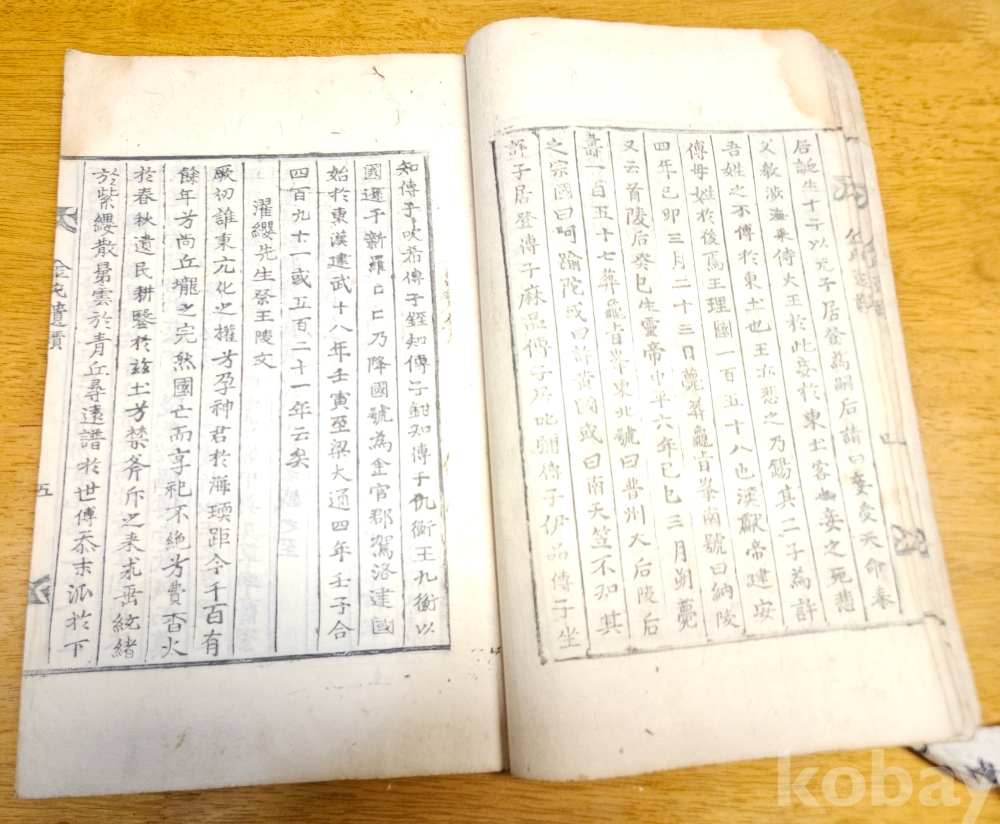 后誕生十子以元子居登為嗣后請曰妾受天命奉
父敎涉海來侍大王於此妾於東土客也妾之死悲
吾姓之不傳於東土也王亦悲之乃錫其二子為許
傳母姓於後焉王理國一百五十八也漢獻帝建安
四年己卯三月二十三日薨葬龜旨峯南號曰納陵
又云首陵后癸巳生靈帝中平六年己巳三月朔薨
壽一百五十七葬龜旨峯東北號曰普州大后陵后
之宗國曰呵踰陀或曰許黃國或曰南天竺不知其
許子居登傳子麻品傳子居叱彌傳子伊品傳子坐
知傳子吹希傳子銍知傳子鉗知傳子仇衝王九衝以
國遜于新羅口口乃降國號為金官郡駕洛建國
始於東漢建武十八年壬寅至梁大通四年壬子合
四百九十一或五百二十一年云矣
濯纓先生祭王陵文
厥初誰東亢化之權芳孕神君於海堧距今千百有
餘年芳尚丘壠之完然國亡而享祀不絶芳費香火
於春秋遺民耕鑿於玆土芳禁斧斤之來求啚紋緖
於紫纓散晷雲於青丘尋遠譜於世傳忝末派於下
金氏遺蹟
五
kobay